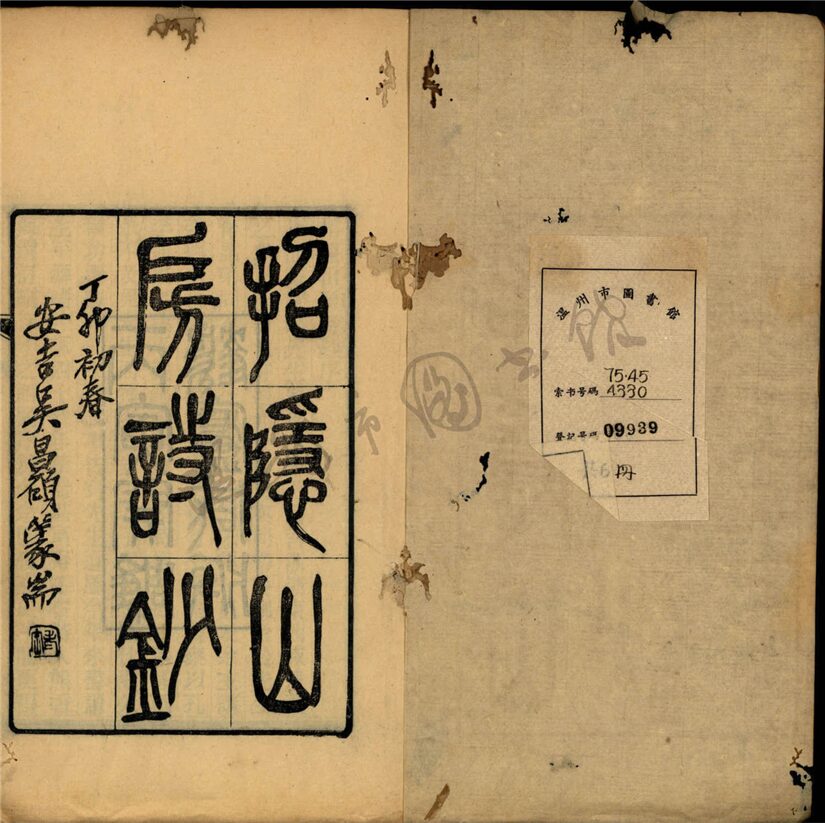 溫州市圖書館
75·45
索書号碼 4330
登記号碼 09939
共6冊
招隱山
房詩鈔
丁卯初春
安吉吳昌碩篆耑